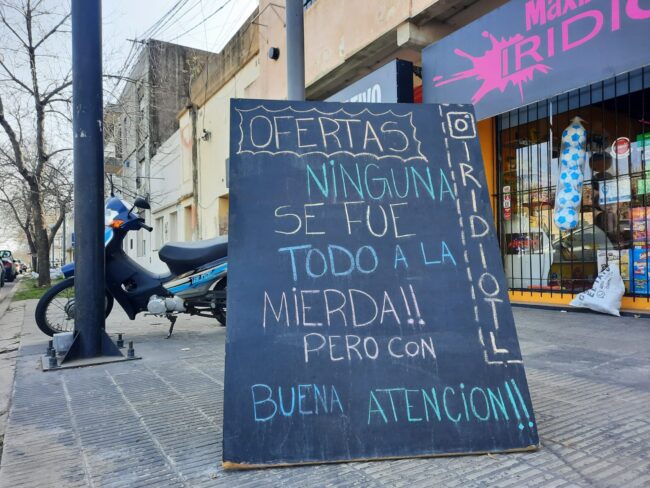 OFERTAS
NINGUNA
SE FUE
TODO A LA
MIERDA!!
PERO CON
BUENA ATENCION!!
IRIDIOTL
Maxi
IRIDIO